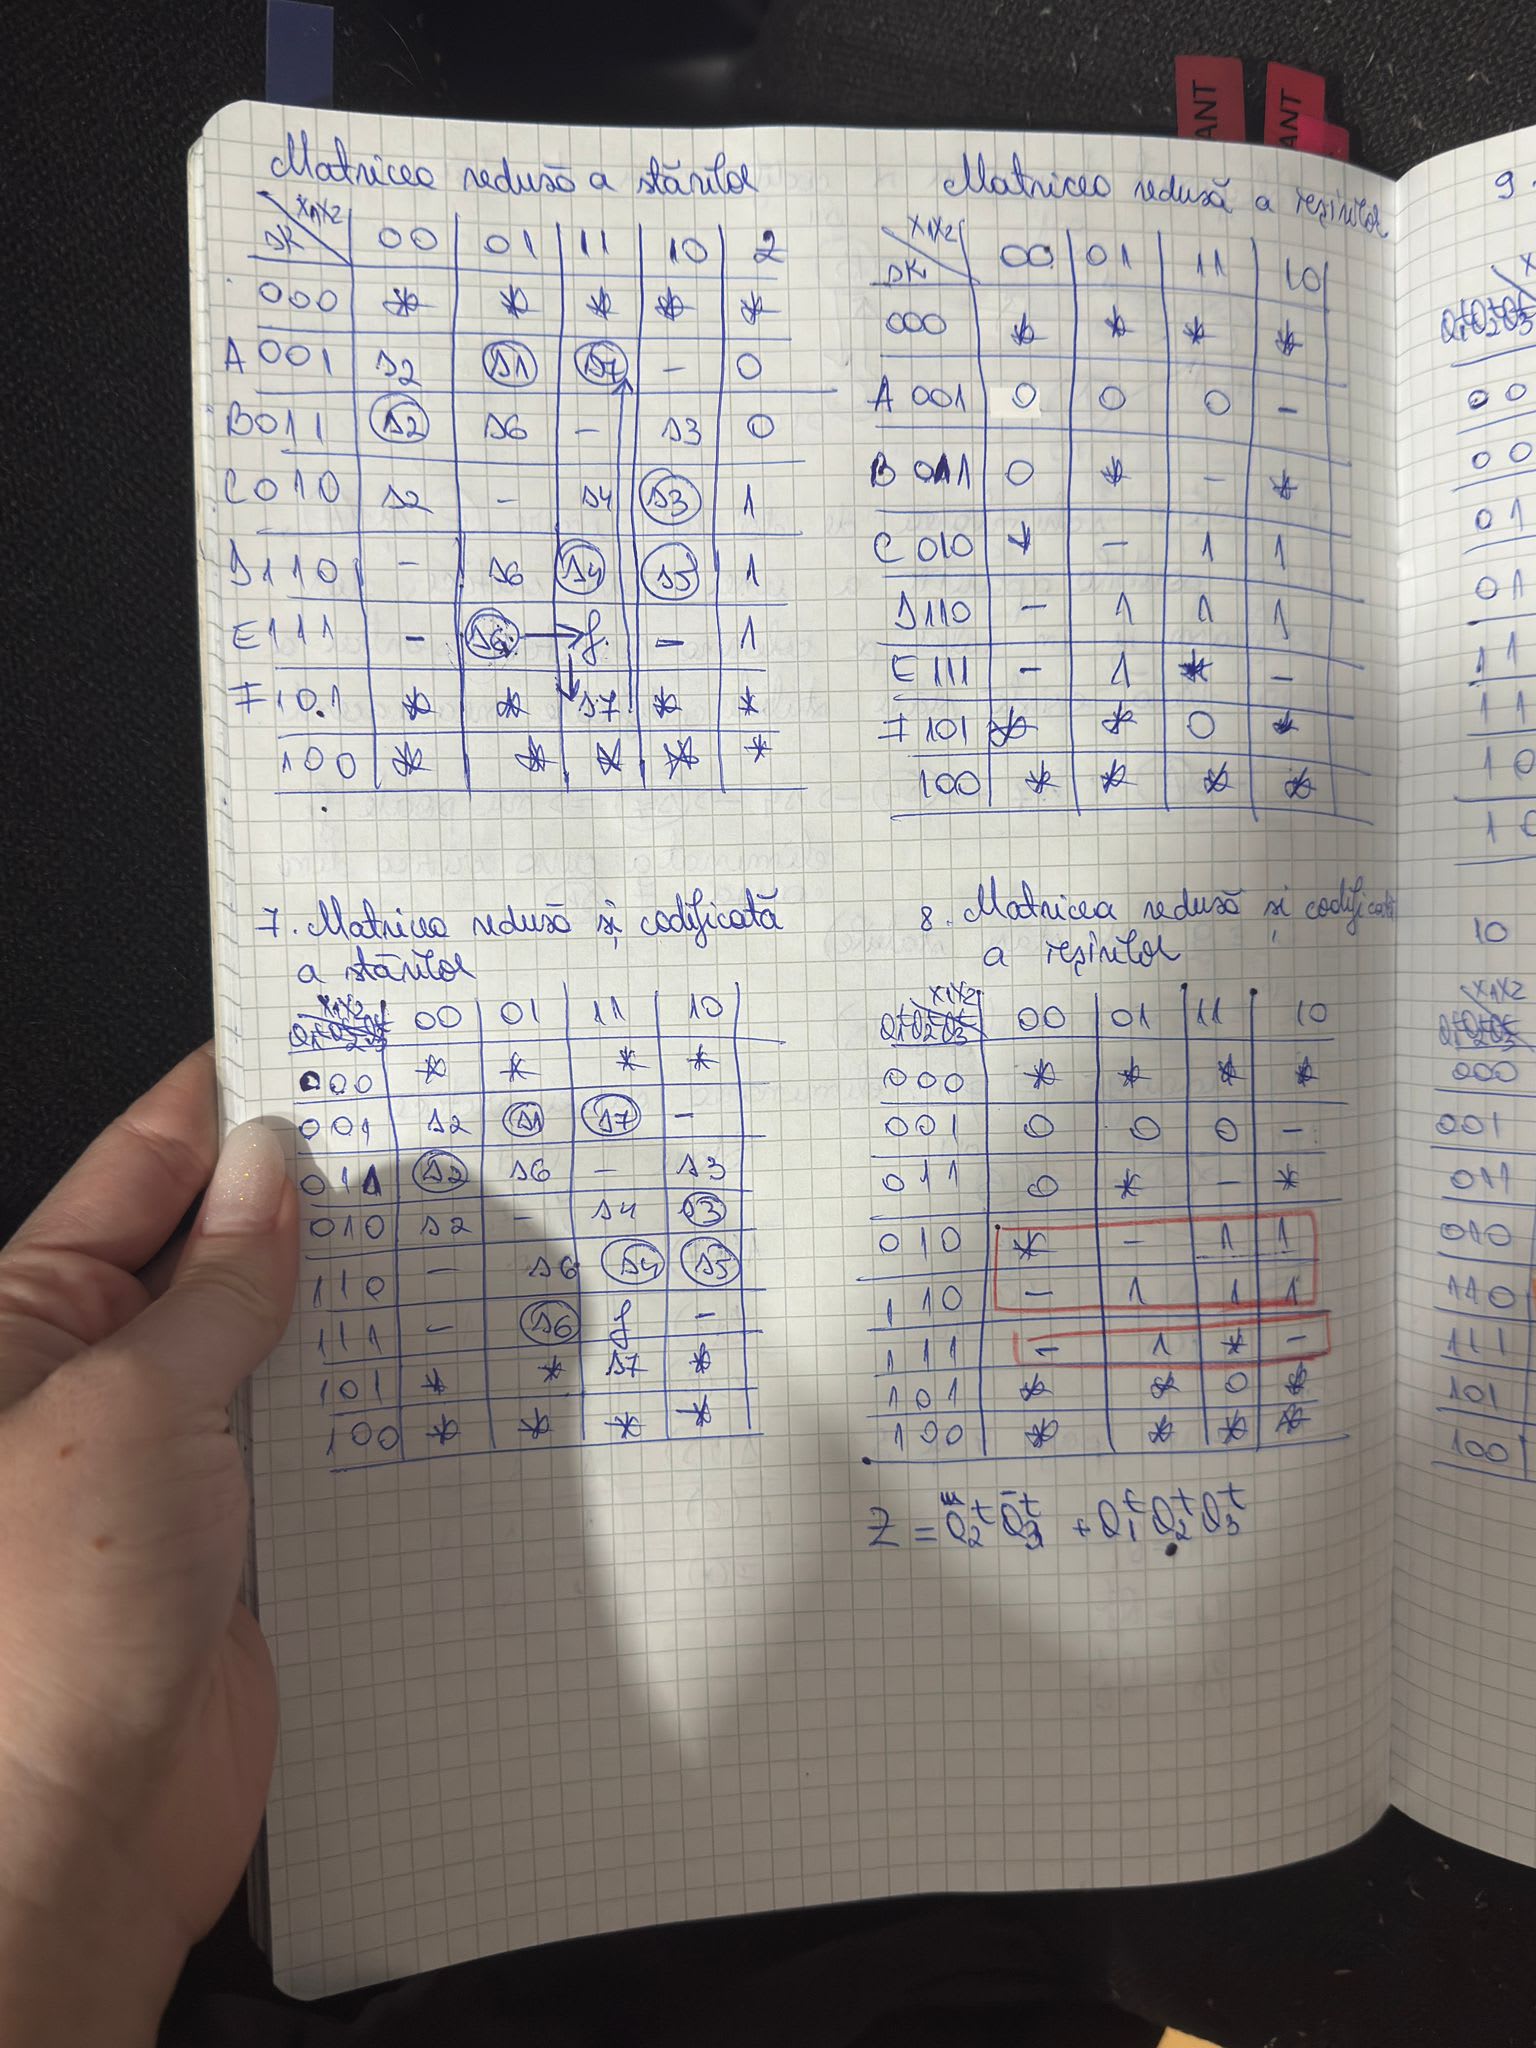 ANT
ANT
Matricea redusă a stărilor
X1X2
SK 00 01 11 10 Z
000 * * * * *
A 001 S2 S1 S7 - 0
B 011 S2 S6 - S3 0
C 010 S2 - S4 S3 1
D 110 - S6 S4 S5 1
E 111 - S6 f - 1
F 101 * * S7 * *
100 * * * * *
Matricea redusă a ieșirilor
X1X2
SK 00 01 11 10
000 * * * *
A 001 0 0 0 -
B 011 0 * - *
C 010 * - 1 1
D 110 - 1 1 1
E 111 - 1 * -
F 101 * * 0 *
100 * * * *
7. Matricea redusă și codificată
a stărilor
X1X2
Q1tQ2tQ3t 00 01 11 10
000 * * * *
001 S2 S1 S7 -
011 S2 S6 - S3
010 S2 - S4 S3
110 - S6 S4 S5
111 - S6 f -
101 * * S7 *
100 * * * *
8. Matricea redusă și codificată
a ieșirilor
X1X2
Q1tQ2tQ3t 00 01 11 10
000 * * * *
001 0 0 0 -
011 0 * - *
010 * - 1 1
110 - 1 1 1
111 - 1 * -
101 * * 0 *
100 * * * *
Z = Q2t Q̄3t + Q1t Q2t Q3t
9.
Q1tQ2tQ3t
00
00
01
01
11
11
10
10
10
X1X2
Q1tQ2tQ3t
000
001
011
010
110
111
101
100